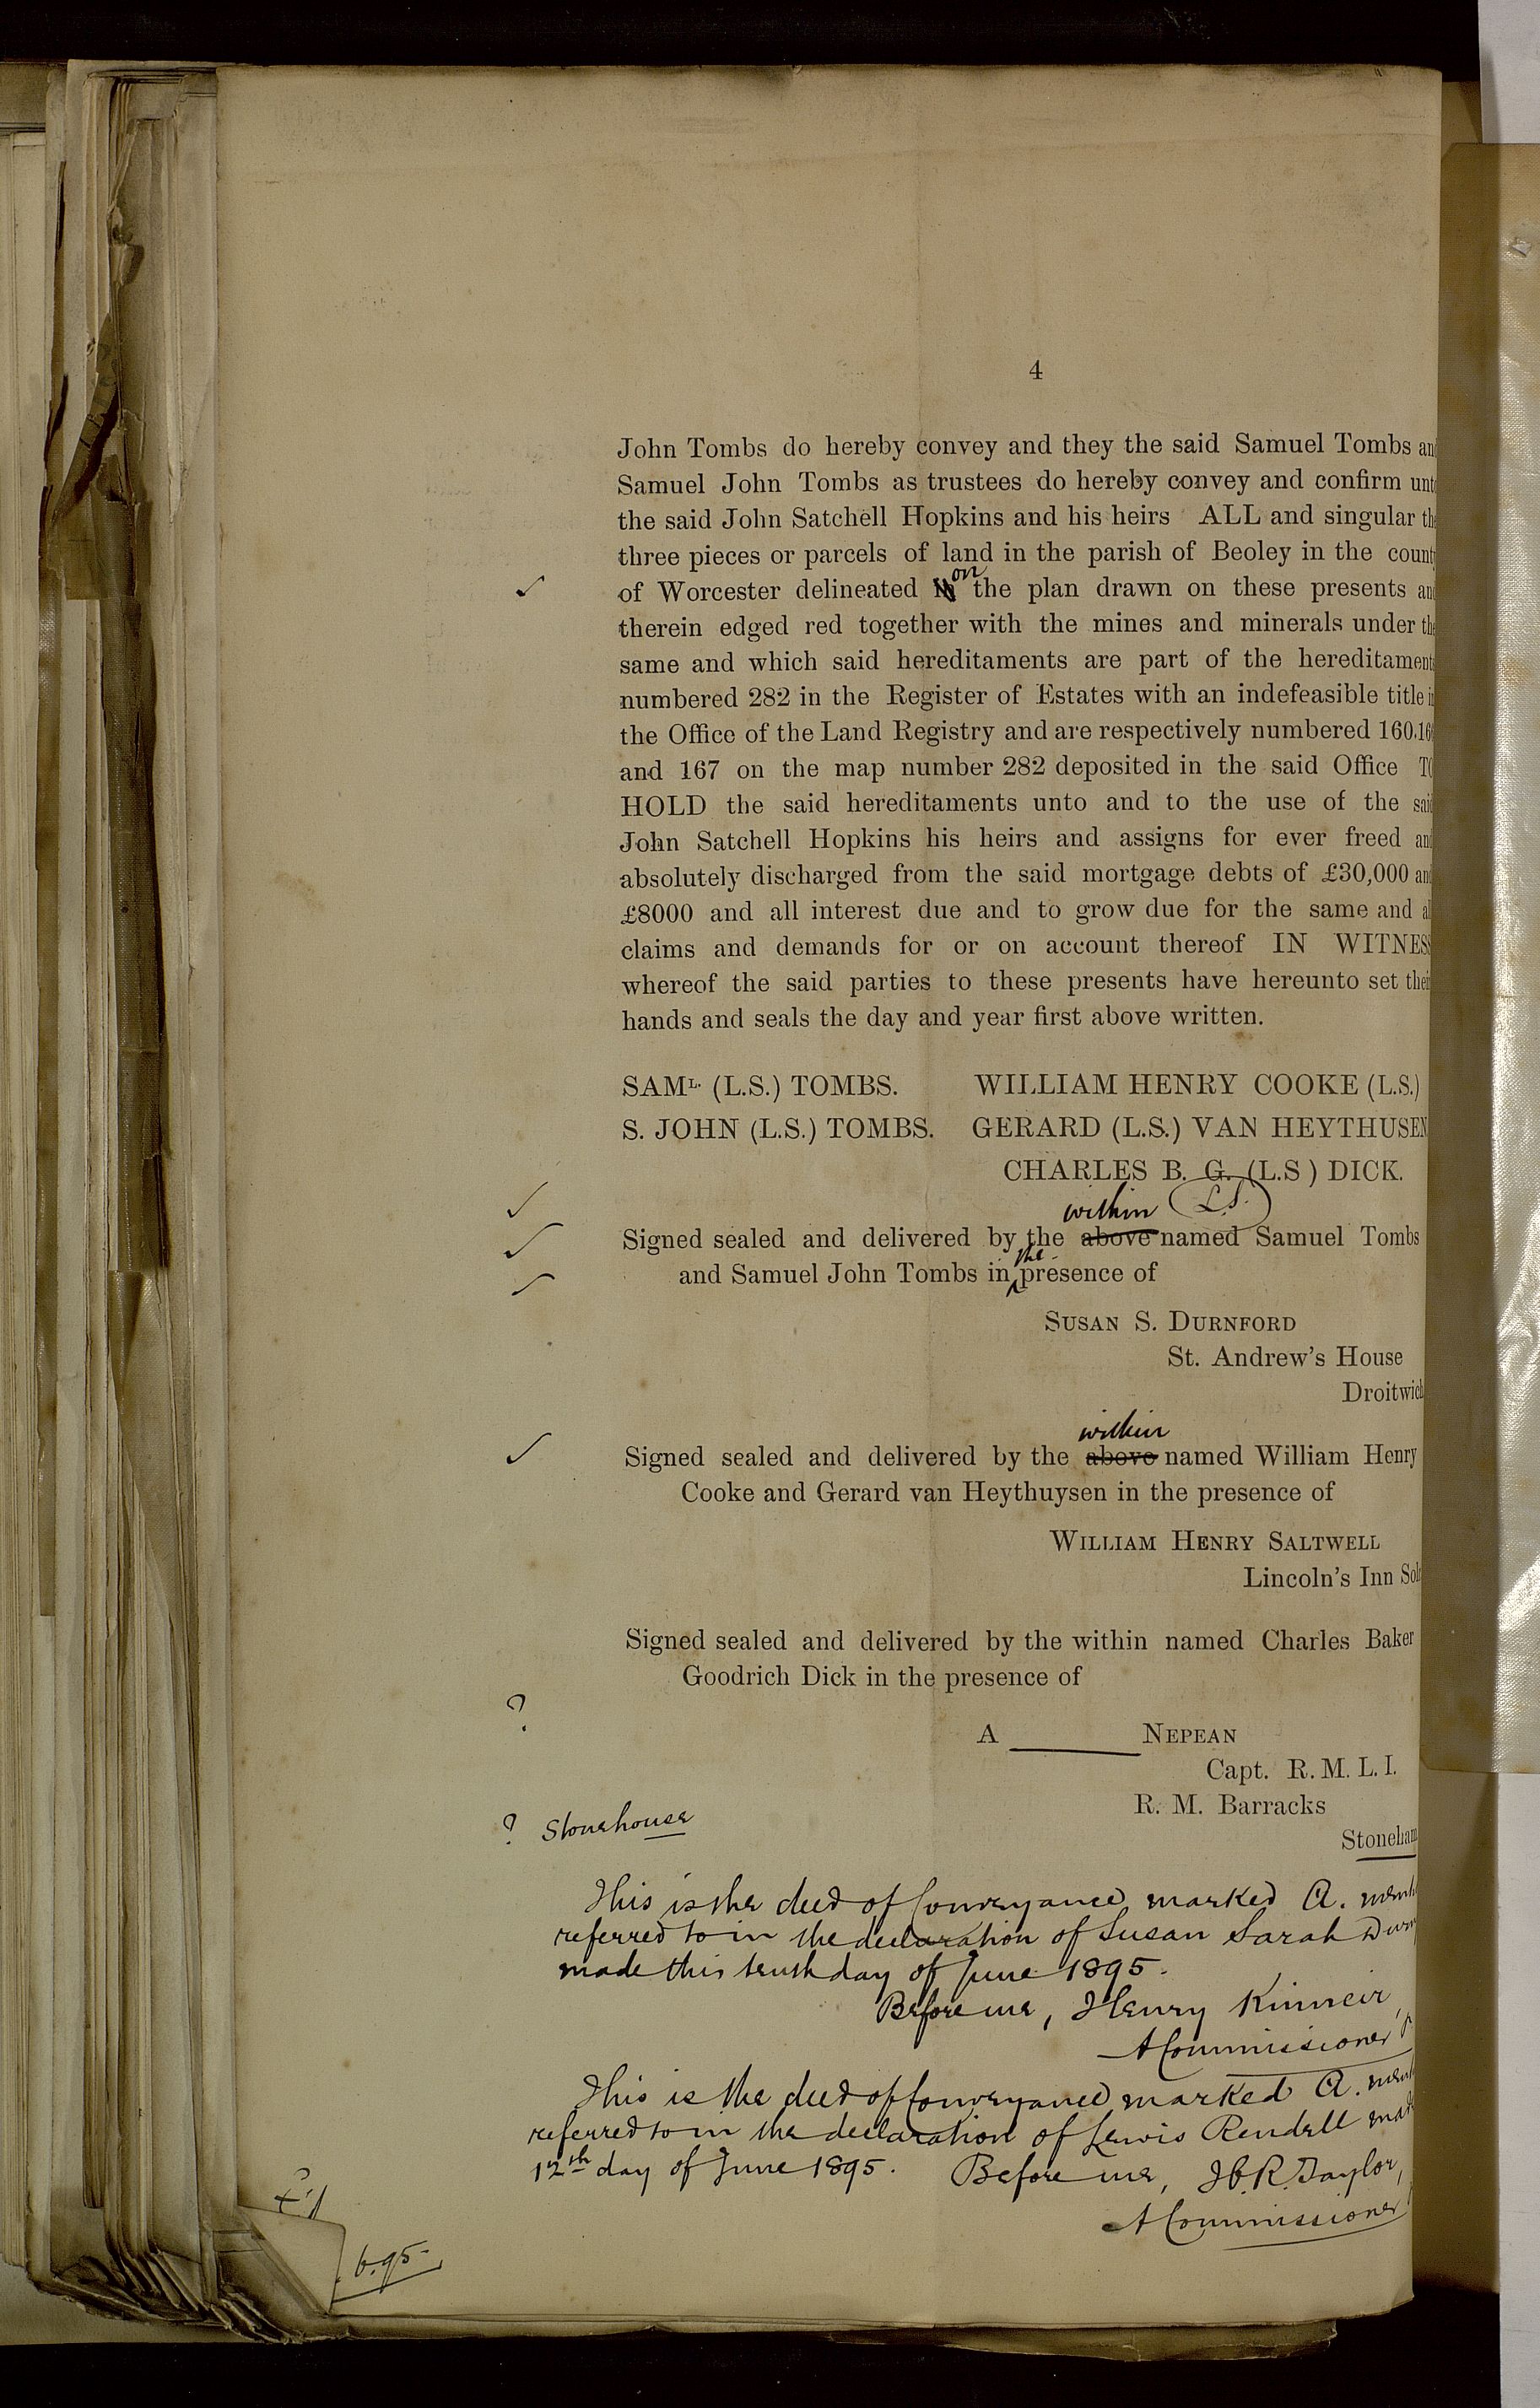 4
John Tombs do hereby convey and they the said Samuel Tombs an
Samuel John Tombs as trustees do hereby convey and confirm unt
the said John Satchell Hopkins and his heirs ALL and singular th
three pieces or parcels of land in the parish of Beoley in the count
of Worcester delineated on the plan drawn on these presents an
therein edged red together with the mines and minerals under th
same and which said hereditaments are part of the hereditament
numbered 282 in the Register of Estates with an indefeasible title i
the Office of the Land Registry and are respectively numbered 160.16
and 167 on the map number 282 deposited in the said Office T
HOLD the said hereditaments unto and to the use of the sai
John Satchell Hopkins his heirs and assigns for ever freed an
absolutely discharged from the said mortgage debts of £30,000 an
£8000 and all interest due and to grow due for the same and a
claims and demands for or on account thereof IN WITNES
whereof the said parties to these presents have hereunto set thei
hands and seals the day and year first above written.
SAML. (L.S.) TOMBS. WILLIAM HENRY COOKE (L.S.)
S. JOHN (L.S.) TOMBS. GERARD (L.S.) VAN HEYTHUSEN
CHARLES B. G. (L.S ) DICK.
within L.S.
Signed sealed and delivered by the above named Samuel Tombs
and Samuel John Tombs in the presence of
SUSAN S. DURNFORD
St. Andrew's House
Droitwich
within
Signed sealed and delivered by the above named William Henry
Cooke and Gerard van Heythuysen in the presence of
WILLIAM HENRY SALTWELL
Lincoln's Inn Sol
Signed sealed and delivered by the within named Charles Baker
Goodrich Dick in the presence of
?
A ______ NEPEAN
Capt. R. M. L. I.
R. M. Barracks
? Stonehouse
Stoneham
This is the deed of Conveyance marked A. ment
referred to in the declaration of Susan Sarah Durn
made this tenth day of June 1895.
Before me, Henry Kinneir,
A Commissioner
This is the deed of Conveyance marked A. ment
referred to in the declaration of Lewis Rendell mad
12th day of June 1895. Before me, J.C.R. Taylor,
A Commissioner
6.95.